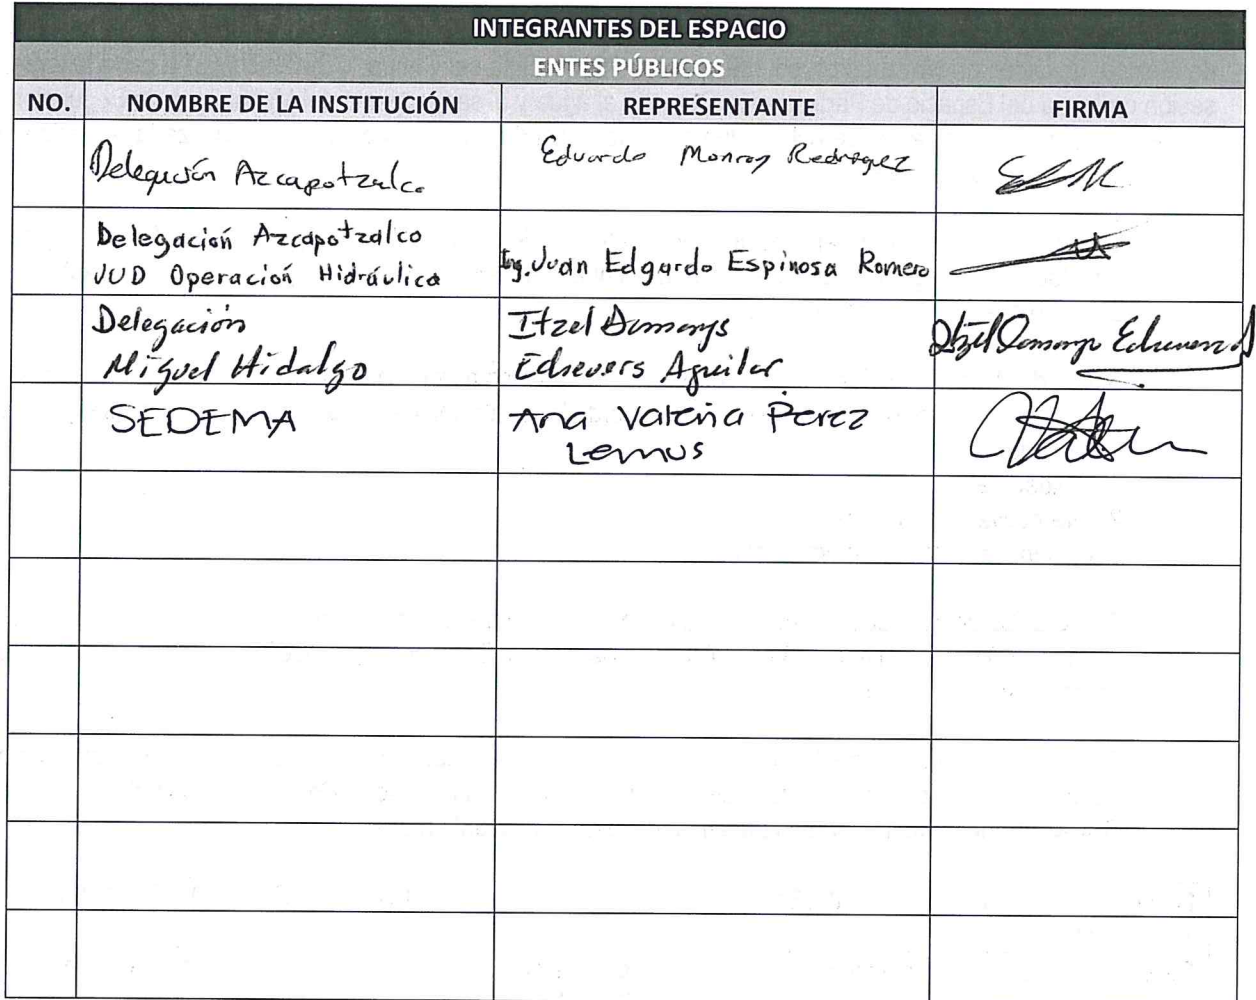 INTEGRANTES DEL ESPACIO
ENTES PÚBLICOS
NO. NOMBRE DE LA INSTITUCIÓN REPRESENTANTE FIRMA
Delegación Azcapotzalco Eduardo Monroy Rodriguez
Delegación Azcapotzalco
JUD Operación Hidráulica Ing. Juan Edgardo Espinosa Romero
Delegación Itzel
Miguel Hidalgo Echevers Aguilar
SEDEMA Ana Valeria Perez
Lemus